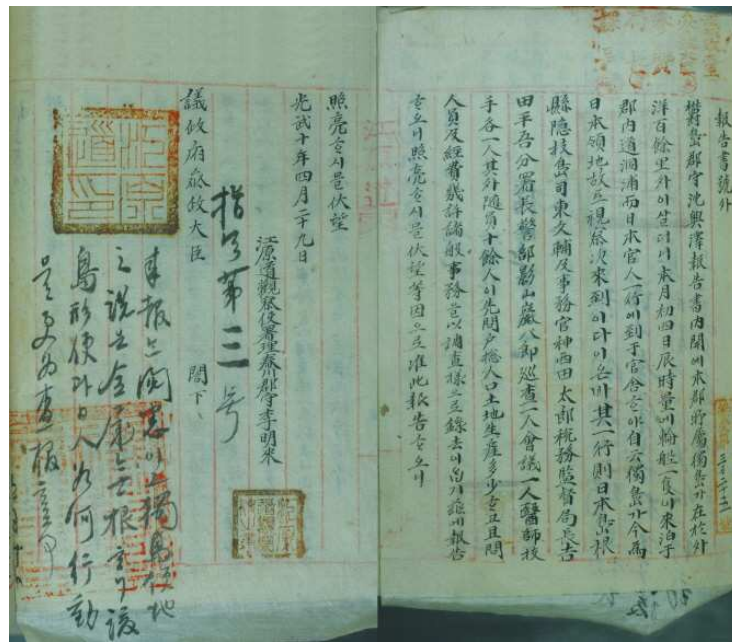 報告書號外
鬱島郡守沈興澤報告書內開에本郡所屬獨島가在於外
洋百餘里外이살더니本月初四日辰時量에輪船一隻이來泊于
郡內道洞浦而日本官人一行에到于官舍ᄒᆞ야自云獨島가今爲
日本領地故로視察次來到이다이온바其一行則日本島根
縣隱技島司東文輔及事務官神西田太郎稅務監督局長吉
田平吾分署長警部影山巖八郎巡査一人會議一人醫師技
手各一人其外隨員十餘人이先問戶總人口土地生産多少ᄒᆞ고且問
人員及經費幾許諸般事務를以調査樣으로錄去이ᄋᆞᆸ기玆에報告
ᄒᆞ오니照亮ᄒᆞ시믈伏望等因으로准此報告ᄒᆞ오니
照亮ᄒᆞ시믈伏望
光武十年四月二十九日
江原道觀察使署理春川郡守李明來
議政府參政大臣 閣下
指令第三号
來報는閱悉이고獨島領地
之說은全屬無根ᄒᆞ나該
島形便과日人如何行動
을更爲査報ᄒᆞᆯ事